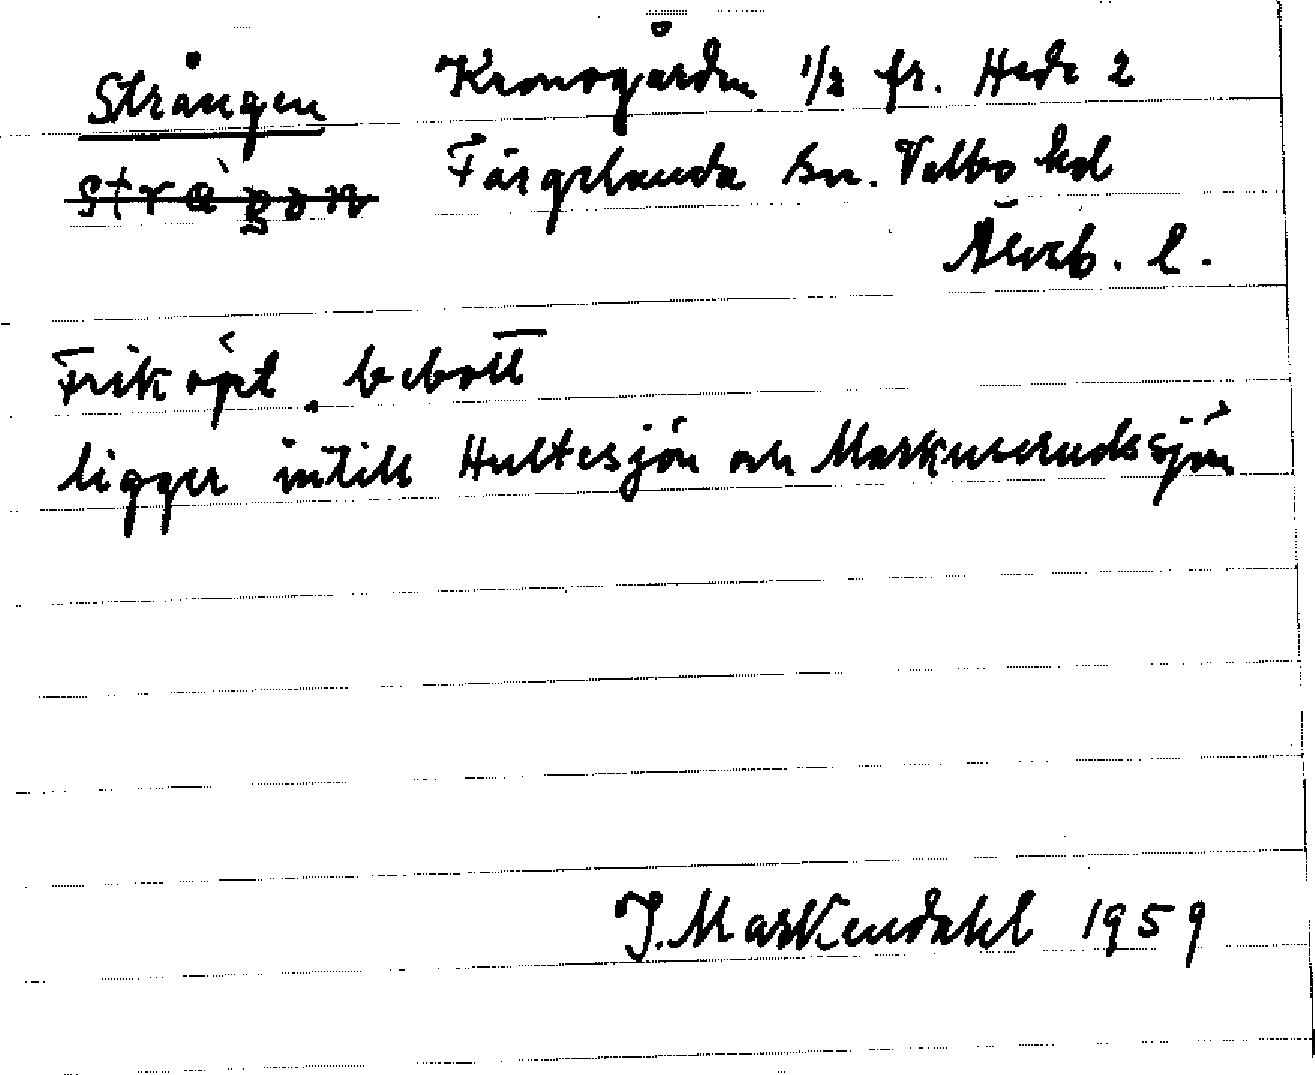 Strången Kronogården 1/2 fr. Hede 2
stràgon Färgelanda sn. Valbo hd
Älvsb. l.
Friköpt, bebott
ligger intill Hultesjön och Markuserudssjön
J. Markendahl 1959